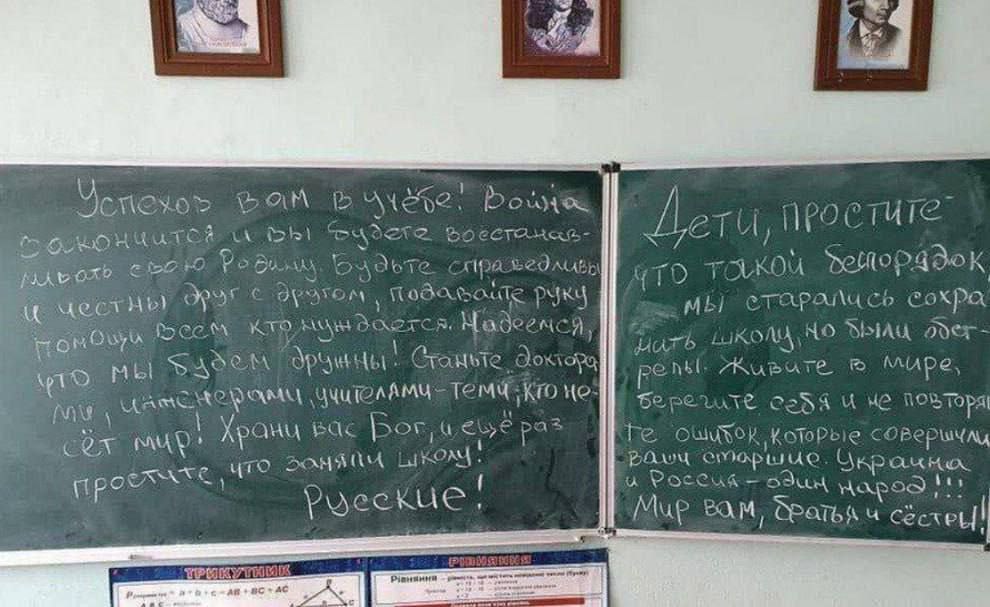 Успехов вам в учёбе! Война
закончится и вы будете восстанав-
ливать свою Родину. Будьте справедливы
и честны друг с другом, подавайте руку
помощи всем кто нуждается. Надеемся,
что мы будем дружны! Станьте доктора-
ми, инженерами, учителями - теми, кто не-
сёт мир! Храни вас Бог, и ещё раз
простите, что заняли школу!
Русские!
Дети, простите
что такой беспорядок,
мы старались сохра
нить школу, но были обст-
релы. Живите в мире,
берегите себя и не повторяй
те ошибок, которые совершили
ваши старшие. Украина
и Россия - один народ!!!
Мир вам, братья и сёстры!
ТРИКУТНИК
= a + b + c = AB + BC + AC
РІВНЯННЯ
Рівняння - рівність, що містить невідоме число (букву)